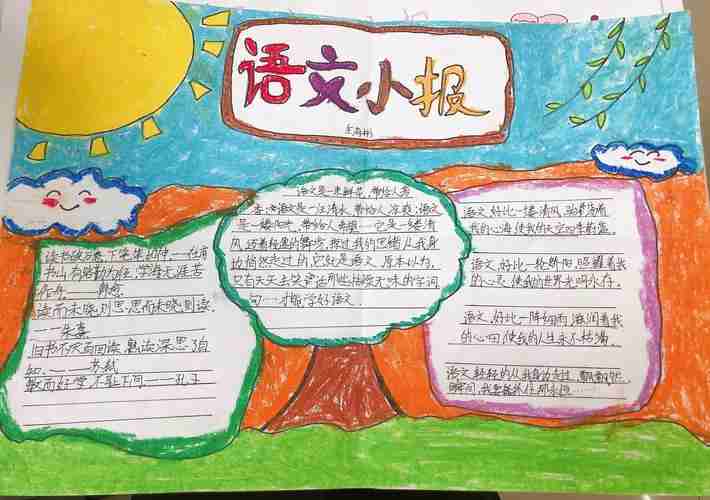 语文小报
读书破万卷,下笔如有神。——杜甫
书山有路勤为径,学海无涯苦
作舟。——韩愈
读而未晓,则思,思而未晓,则读。
——朱熹
旧书不厌百回读,熟读深思子自
知。——苏轼
敏而好学,不耻下问。——孔子
语文是一束鲜花,带给人芳
香;语文是一江清水,带给人凉爽;语文
是一缕阳光,带给人希望……它是一缕清
风,迈着轻盈的舞步,掠过我的思绪,从我身
边悄然走过的,它就是语文。原本以为,
只有天天去背诵那些枯燥无味的字词
句……才能学好语文。
语文,好比一缕清风,着
我的心海,使我的天空四季蔚蓝。
语文,好比一轮骄阳,照耀着我
的心灵,使我的世界光明永存。
语文,好比一阵细雨,滋润着我
的心田,使我的人生永不枯竭。
语文轻轻的从我身旁走过,
瞬间,我要抓住那永恒……